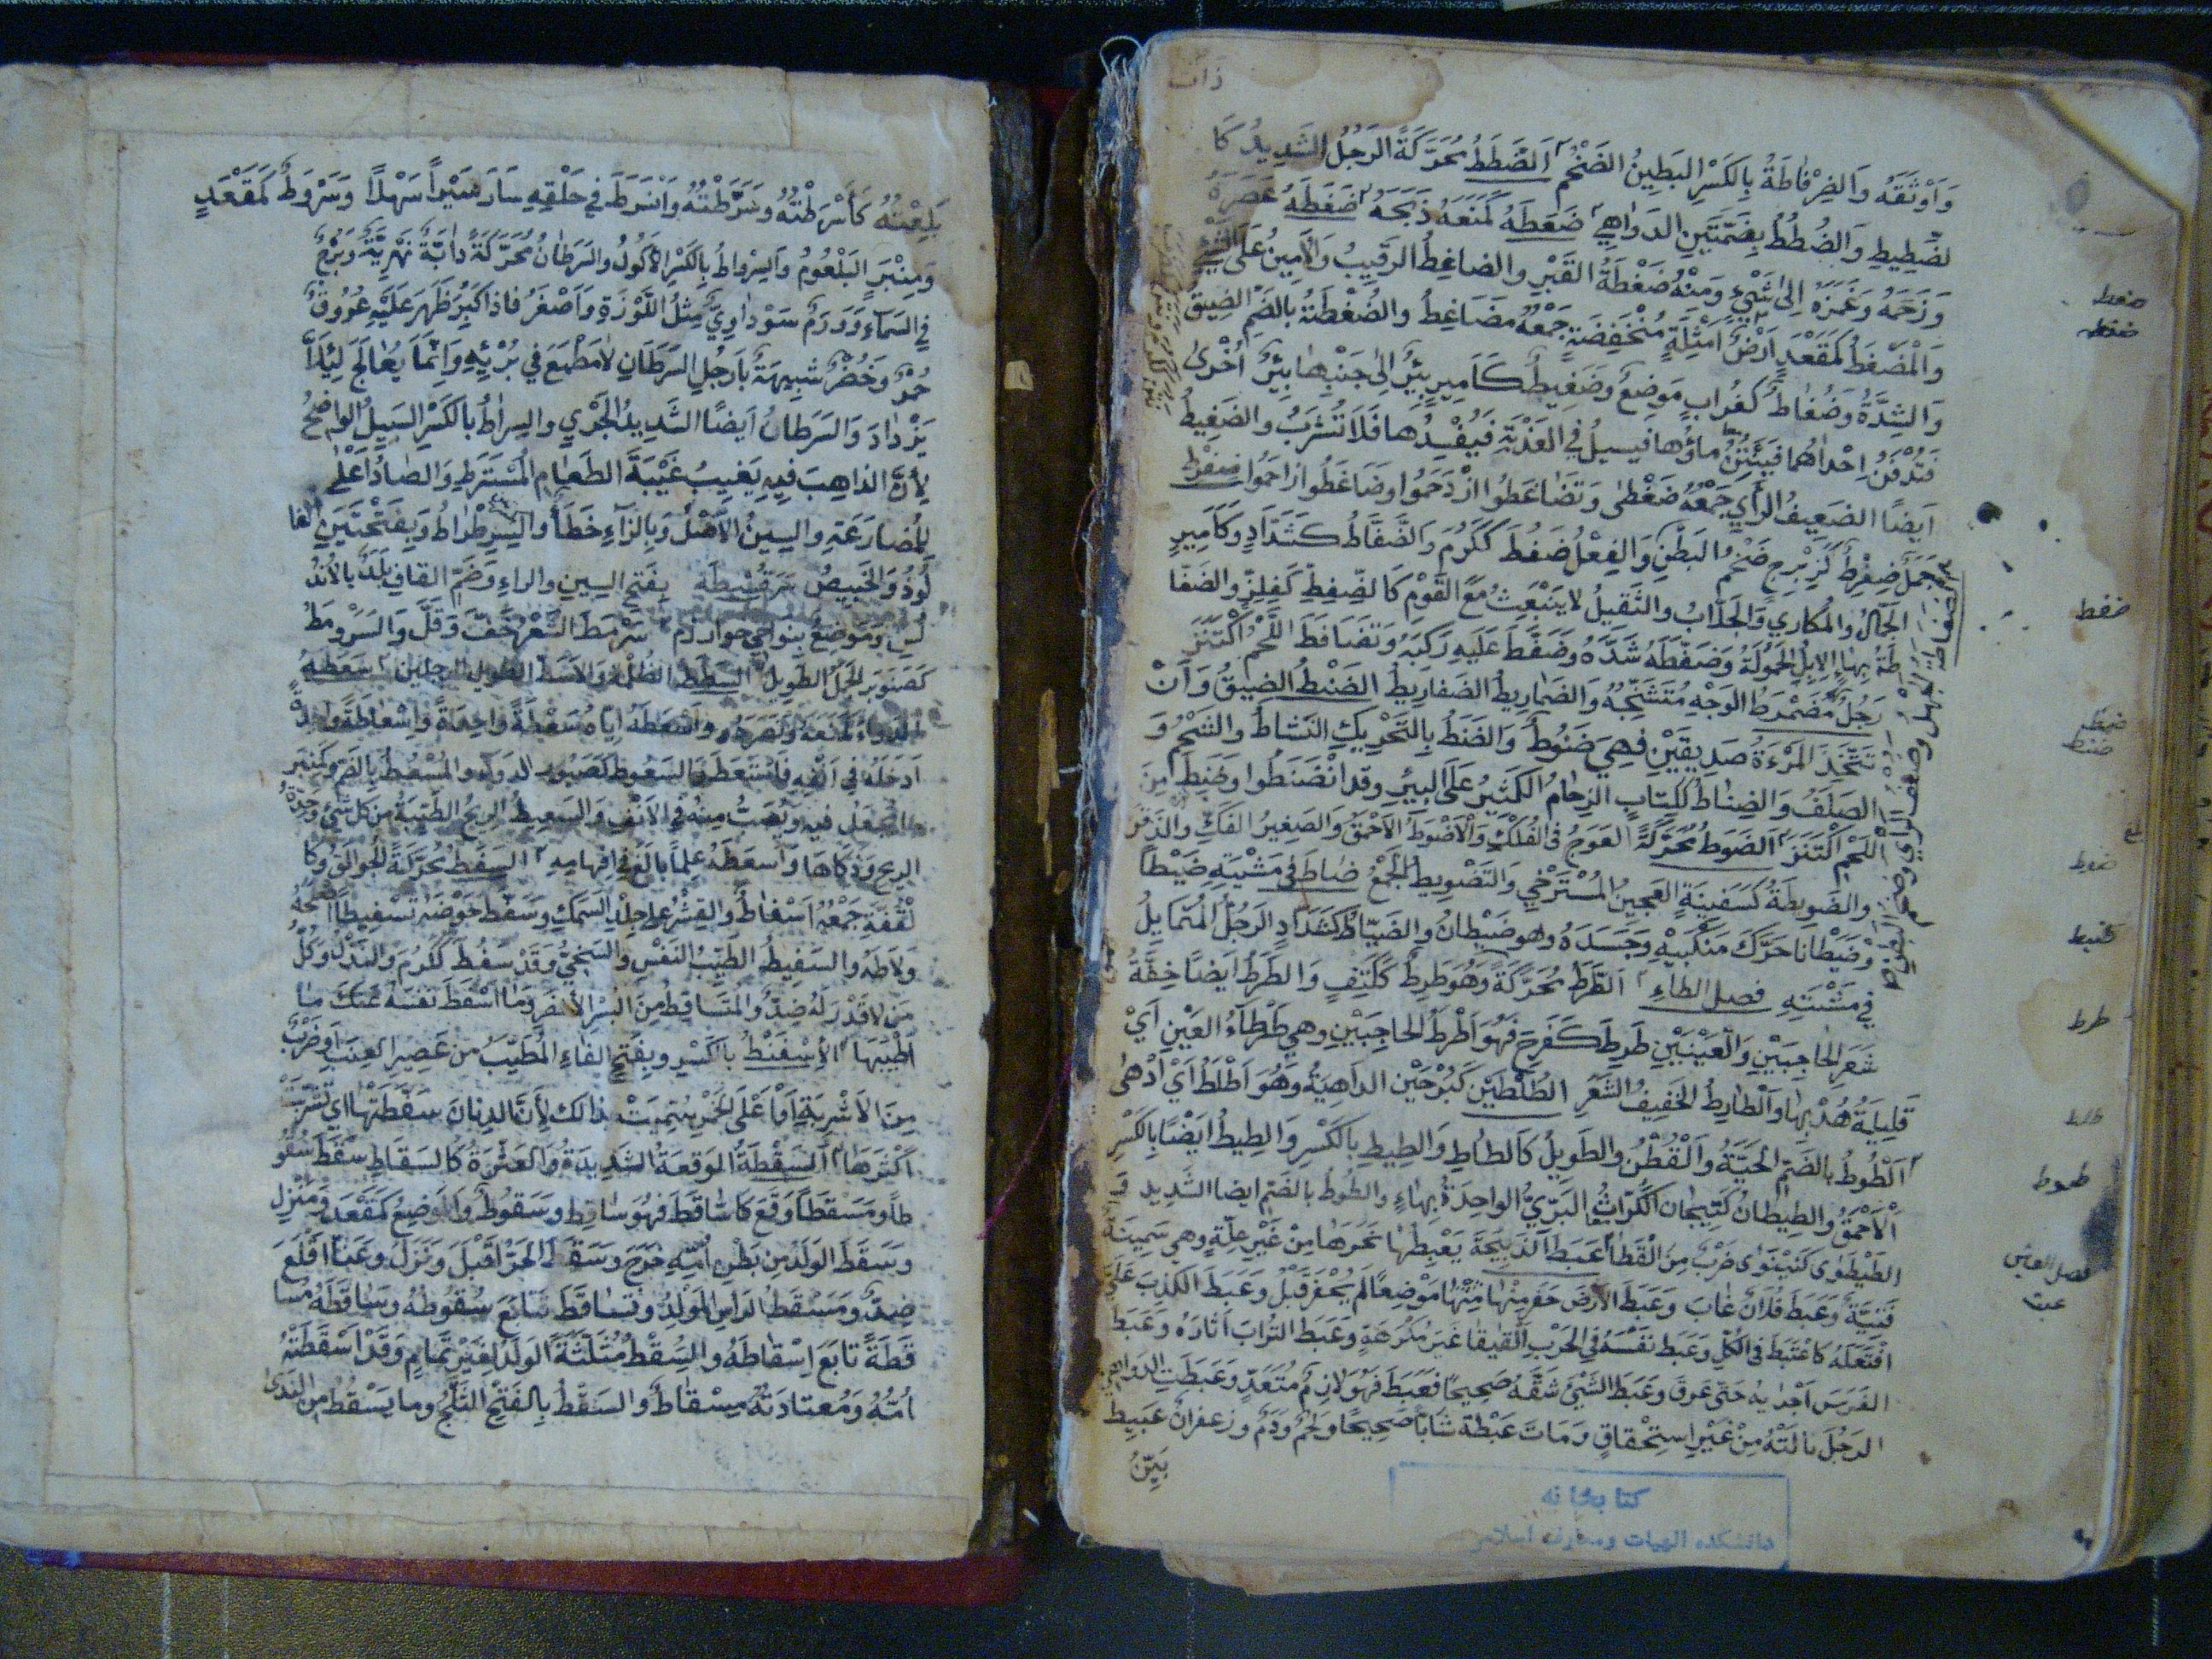 وَاَوْثَقَهُ وَالضِرْفَاطَةُ بِالكَسْرِ البَطِينُ الضَخْمُ اَلضَّطَطُ مُحَرَّكَةً الرَجُلُ الشَدِيدُ كَا
لضَّطِيطِ وَالضُطُطُ بِضَمَّتَيْنِ الدَوَاهِي ضَعَطَهُ كَمَنَعَهُ ذَبَحَهُ ضَغَطَهُ عَصَرَهُ
وَزَحَمَهُ وَغَمَزَهُ اِلىٰ شَيْءٍ وَمِنْهُ ضَغْطَةُ القَبْرِ والضاغِطُ الرَقِيبُ وَالْاَمِينُ عَلَى الشَيْءِ
وَالْمَضْغَطُ كَمَقْعَدٍ اَرْضٌ اَمْثِلَةٍ مُنْخَفِضَةٍ جَمْعُهُ مَضَاغِطُ والضُغْطَةُ بِالضَمِّ الضِيقُ
وَالشِدَّةُ وَضُغَاطٌ كَغُرَابٍ مَوضِعٌ وَضَغِيطٌ كَاَمِيرٍ بِئْرٌ اِلىٰ جَنْبِهَا بِئْرٌ اُخْرىٰ
فَتُدْفَنُ اِحْدَاهُمَا فَيَنْتُنُ مَاؤُهَا فَيَسِيلُ فِي العَذْبَةِ فَيُفْسِدُهَا فَلَا تُشْرَبُ والضَغِيطُ
اَيضًا الضَعِيفُ الرَأْيِ جَمْعُهُ ضَغْطىٰ وَتَضَاغَطُوا اِزْدَحَمُوا وَضَاغَطُوا زَاحَمُوا ضِفْرِطٌ
جَمَلٌ ضِفْرِطٌ كَزِبْرِجٍ ضَخْمُ البَطْنِ وَالفِعْلُ ضَفُطَ كَكَرُمَ وَالضَّفَّاطُ كَشَدَّادٍ وَكَاَمِيرٍ
الجَمَّالُ والمُكَارِي وَالجَلَّابُ والثَقِيلُ لَا يَنْبَعِثُ مَعَ القَوْمِ كَالضِفِطِّ كَفِلِزٍّ وَالضَفَّا
طَةُ بِهَاءٍ الاِبِلُ الحَمُولَةُ وَضَفَّطَهُ شَدَّهُ وَضَفَّطَ عَلَيهِ رَكِبَهُ وَتَضَافَطَ اللَّحْمُ اكْتَنَزَ
رَجُلٌ مُضَمْرَطُ الوَجْهِ مُتَشَنِّجُهُ وَالضَمَارِيطُ الضَفَارِيطُ الضَنْطُ الضِيقُ وَاَنْ
تَتَّخِذَ المَرْءَةُ صَدِيقَيْنِ فَهِيَ ضَنُوطٌ وَالضَنَطُ بِالتَحْرِيكِ النَشَاطُ وَالشَحْمُ وَ
الصَلَفُ وَالضِنَاطُ كَكِتَابٍ الزِحَامُ الكَثِيرُ عَلَى البِئْرِ وَقَدِ انْضَنَطُوا وَضَنِطَ مِنَ
اللَّحْمِ اكْتَنَزَ اَلضَوَطُ مُحَرَّكَةً العَوَجُ فِي الفَكِّ وَالْاَضْوَطُ الاَحْمَقُ وَالصَغِيرُ الفَكِّ وَالذَقَنِ
وَالضَوِيطَةُ كَسَفِينَةٍ العَجِينُ المُسْتَرْخِي وَالتَضْوِيطُ الجَمْعُ ضَاطَ فِي مَشْيَتِهِ ضَيْطًا
وَضَيَطَانًا حَرَّكَ مَنْكِبَيْهِ وَجَسَدَهُ وَهُوَ ضَيْطَانٌ والضَيَّاطُ كَشَدَّادٍ الرَجُلُ المُتَمَايِلُ
فِي مَشْيَتِهِ فصل الطاءِ اَلطَرَطُ مُحَرَّكَةً وَهُوَ طَرِطٌ كَكَتِفٍ وَالطَرَطُ اَيضًا خِفَّةُ
شَعَرِ الحَاجِبَيْنِ وَالْعَيْنَيْنِ طَرِطَ كَفَرِحَ فَهُوَ اَطْرَطُ الحَاجِبَيْنِ وَهِيَ طَرْطَاءُ العَيْنِ اَيْ
قَلِيلَةُ هُدْبِهَا وَالطَارِطُ الخَفِيفُ الشَعَرِ الطُلَطِيْنِ كَبُرَحِيْنَ الدَاهِيَةُ وَهُوَ اَطْلَطُ اَيْ اَدْهىٰ
الطُوطُ بِالضَمِّ الحَيَّةُ وَالْقُطْنُ وَالطَوِيلُ كَالطَاطِ وَالطِيطِ بِالكَسْرِ وَالطِيطُ اَيْضًا بِالكَسْرِ
الْاَحْمَقُ والطِيطَانُ كَتِيجَانٍ الكُرَّاثُ البَرِّيُّ الوَاحِدَةُ بِهَاءٍ وَالطُوطُ بِالضَمِّ اَيضًا الشَدِيدُ
الطِيطَوَى كَنِينَوَى ضَرْبٌ مِنَ القَطَا عَبَطَ الذَبِيحَةَ يَعْبِطُهَا نَحَرَهَا مِنْ غَيْرِ عِلَّةٍ وَهِيَ سَمِينَةٌ
فَتِيَّةٌ وَعَبَطَ فُلَانٌ غَابَ وَعَبَطَ الْاَرْضَ حَفَرَ مِنْهَا مَوْضِعًا لَمْ يُحْفَرْ قَبْلُ وَعَبَطَ الكَذِبَ عَلَيَّ
افْتَعَلَهُ كَاعْتَبَطَ فِي الكُلِّ وَعَبَطَ نَفْسَهُ فِي الحَرْبِ اَلْقَاهَا غَيْرَ مُكْرَهَةٍ وَعَبَطَ التُرَابَ اَثَارَهُ وَعَبَطَ
الفَرَسَ اَجْرَاهُ حَتّىٰ عَرِقَ وَعَبَطَ الشَيْءَ شَقَّهُ صَحِيحًا فَعَبَطَ فَهُوَ لَازِمٌ مُتَعَدٍّ وَعَبَطَتِ الدَوَاهِي
الرَجُلَ نَالَتْهُ مِنْ غَيْرِ اسْتِحْقَاقٍ وَمَاتَ عَبْطَةً شَابًّا صَحِيحًا وَلَحْمٌ وَدَمٌ وَزَعْفَرَانٌ عَبِيطٌ
بَيِّنُ
ضعط
ضغط
ضفط
ضمط
ضنط
ضوط
ضيط
طرط
طلط
طوط
فصل العين
عبط
كتابخانه
دانشكده الهيات ومعارف اسلامى
بَلِعَتْهُ كَاَسْرَطَتْهُ وَسَرَّطَتْهُ وَانْسَرَطَ فِي حَلْقِهِ سَارَ سَيْرًا سَهْلًا وَسَرْوَطٌ كَمَقْعَدٍ
وَمِنْبَرٍ البَلْعُومُ وَالسِرْوَاطُ بِالكَسْرِ الْاَكُولُ وَالسَرَطَانُ مُحَرَّكَةً دَابَّةٌ نَهْرِيَّةٌ وَبُرْجٌ
فِي السَمَاءِ وَوَرَمٌ سَوْدَاوِيٌّ مِثْلُ اللَّوْزَةِ وَاَصْغَرُ فَاِذَا كَبُرَ ظَهَرَ عَلَيْهِ عُرُوقٌ
حُمْرٌ وَخُضْرٌ شَبِيهَةٌ بِاَرْجُلِ السَرَطَانِ لَا مَطْمَعَ فِي بُرْئِهِ وَاِنَّمَا يُعَالَجُ لِئَلَّا
يَزْدَادَ وَالسَرَطَانُ اَيضًا الشَدِيدُ الجَرْيِ وَالسِرَاطُ بِالكَسْرِ السَبِيلُ الوَاضِحُ
لِاَنَّ الذَاهِبَ فِيهِ يَغِيبُ غَيْبَةَ الطَعَامِ المُسْتَرَطِ وَالصَادُ اَعْلىٰ
لِلْمُضَارَعَةِ وَالسِينُ الْاَصْلُ وَبِالزَاءِ خَطَأٌ وَالسِرِطْرَاطُ وَبِفَتْحَتَيْنِ الفَا
لُوذُ وَالخَبِيصُ سَرَقُسْطَةُ بِفَتْحِ السِينِ وَالرَاءِ وَضَمِّ القَافِ بَلَدٌ بِالْاَنْدُ
لُسِ وَمَوْضِعٌ بِنَوَاحِي خُوَارَزْمَ سَرْمَطَ الشَعْرُ خَفَّ وَقَلَّ وَالسَرَوْمَطُ
كَصَنَوْبَرٍ الجَمَلُ الطَوِيلُ السُطُطُ الظُلْمُ وَالْاَسَطُّ الطَوِيلُ الرِجْلَيْنِ سَعَطَهُ
الدَوَاءَ كَمَنَعَهُ وَنَصَرَهُ وَاَسْعَطَهُ اِيَّاهُ سَعْطَةً وَاحِدَةً وَاِسْعَاطَةً وَاحِدَةً
اَدْخَلَهُ فِي اَنْفِهِ فَاسْتَعَطَ وَالسَعُوطُ كَصَبُورٍ الدَوَاءُ وَالمُسْعُطُ بِالضَمِّ وَكَمِنْبَرٍ
مَا يُجْعَلُ فِيهِ وَيُصَبُّ مِنْهُ فِي الْاَنْفِ وَالسَعِيطُ الرِيحُ الطَيِّبَةُ مِنْ كُلِّ شَيْءٍ وَحِدَّةُ
الرِيحِ وَذَكَاهَا وَاَسْعَطَهُ عِلْمًا بَالَغَ فِي اِفْهَامِهِ السَفَطُ مُحَرَّكَةً كَالجُوَالَقِ وَكَا
لْقُفَّةِ جَمْعُهُ اَسْفَاطٌ وَالقِشْرُ عَلىٰ جِلْدِ السَمَكِ وَسَفَّطَ حَوْضَهُ تَسْفِيطًا اَصْلَحَهُ
وَلَاطَهُ وَالسَفِيطُ الطَيِّبُ النَفْسِ وَالسَخِيُّ وَقَدْ سَفُطَ كَكَرُمَ وَالنَذْلُ وَكُلُّ
مَنْ لَا قَدْرَ لَهُ ضِدٌّ وَالمُتَسَاقِطُ مِنَ البُسْرِ الْاَخْضَرِ وَمَا اَسْفَطَ نَفْسَهُ عَنْكَ مَا
اَطْيَبَهَا الْاِسْفَنْطُ بِالكَسْرِ وَبِفَتْحِ الفَاءِ المُطَيَّبُ مِنْ عَصِيرِ العِنَبِ اَوْ ضَرْبٌ
مِنَ الْاَشْرِبَةِ اَوْ اَعْلَى الخَمْرِ سُمِّيَتْ بِذَالِكَ لِاَنَّ الدِنَانَ سَفَّطَتْهَا اَيْ تَشَرَّبَتْ
اَكْثَرَهَا اَلسَقْطَةُ الوَقْعَةُ الشَدِيدَةُ وَالعَثْرَةُ كَالسِقَاطِ سَقَطَ سُقُو
طًا وَمَسْقَطًا وَقَعَ كَاسَّاقَطَ فَهُوَ سَاقِطٌ وَسَقُوطٌ وَالمَوْضِعُ كَمَقْعَدٍ وَمَنْزِلٍ
وَسَقَطَ الوَلَدُ مِنْ بَطْنِ اُمِّهِ خَرَجَ وَسَقَطَ الحَرُّ اَقْبَلَ وَنَزَلَ وَعَنَّا اَقْلَعَ
ضِدٌّ وَمَسْقَطُ الرَأْسِ المَوْلِدُ وَتَسَاقَطَ تَتَابَعَ سُقُوطُهُ وَسَاقَطَهُ مُسَا
قَطَةً تَابَعَ اِسْقَاطَهُ وَالسِقْطُ مُثَلَّثَةً الوَلَدُ لِغَيْرِ تَمَامٍ وَقَدْ اَسْقَطَتْهُ
اُمُّهُ وَمُعْتَادَتُهُ مِسْقَاطٌ وَالسَقْطُ بِالفَتْحِ الثَلْجُ وَمَا يَسْقُطُ مِنَ النَدىٰ